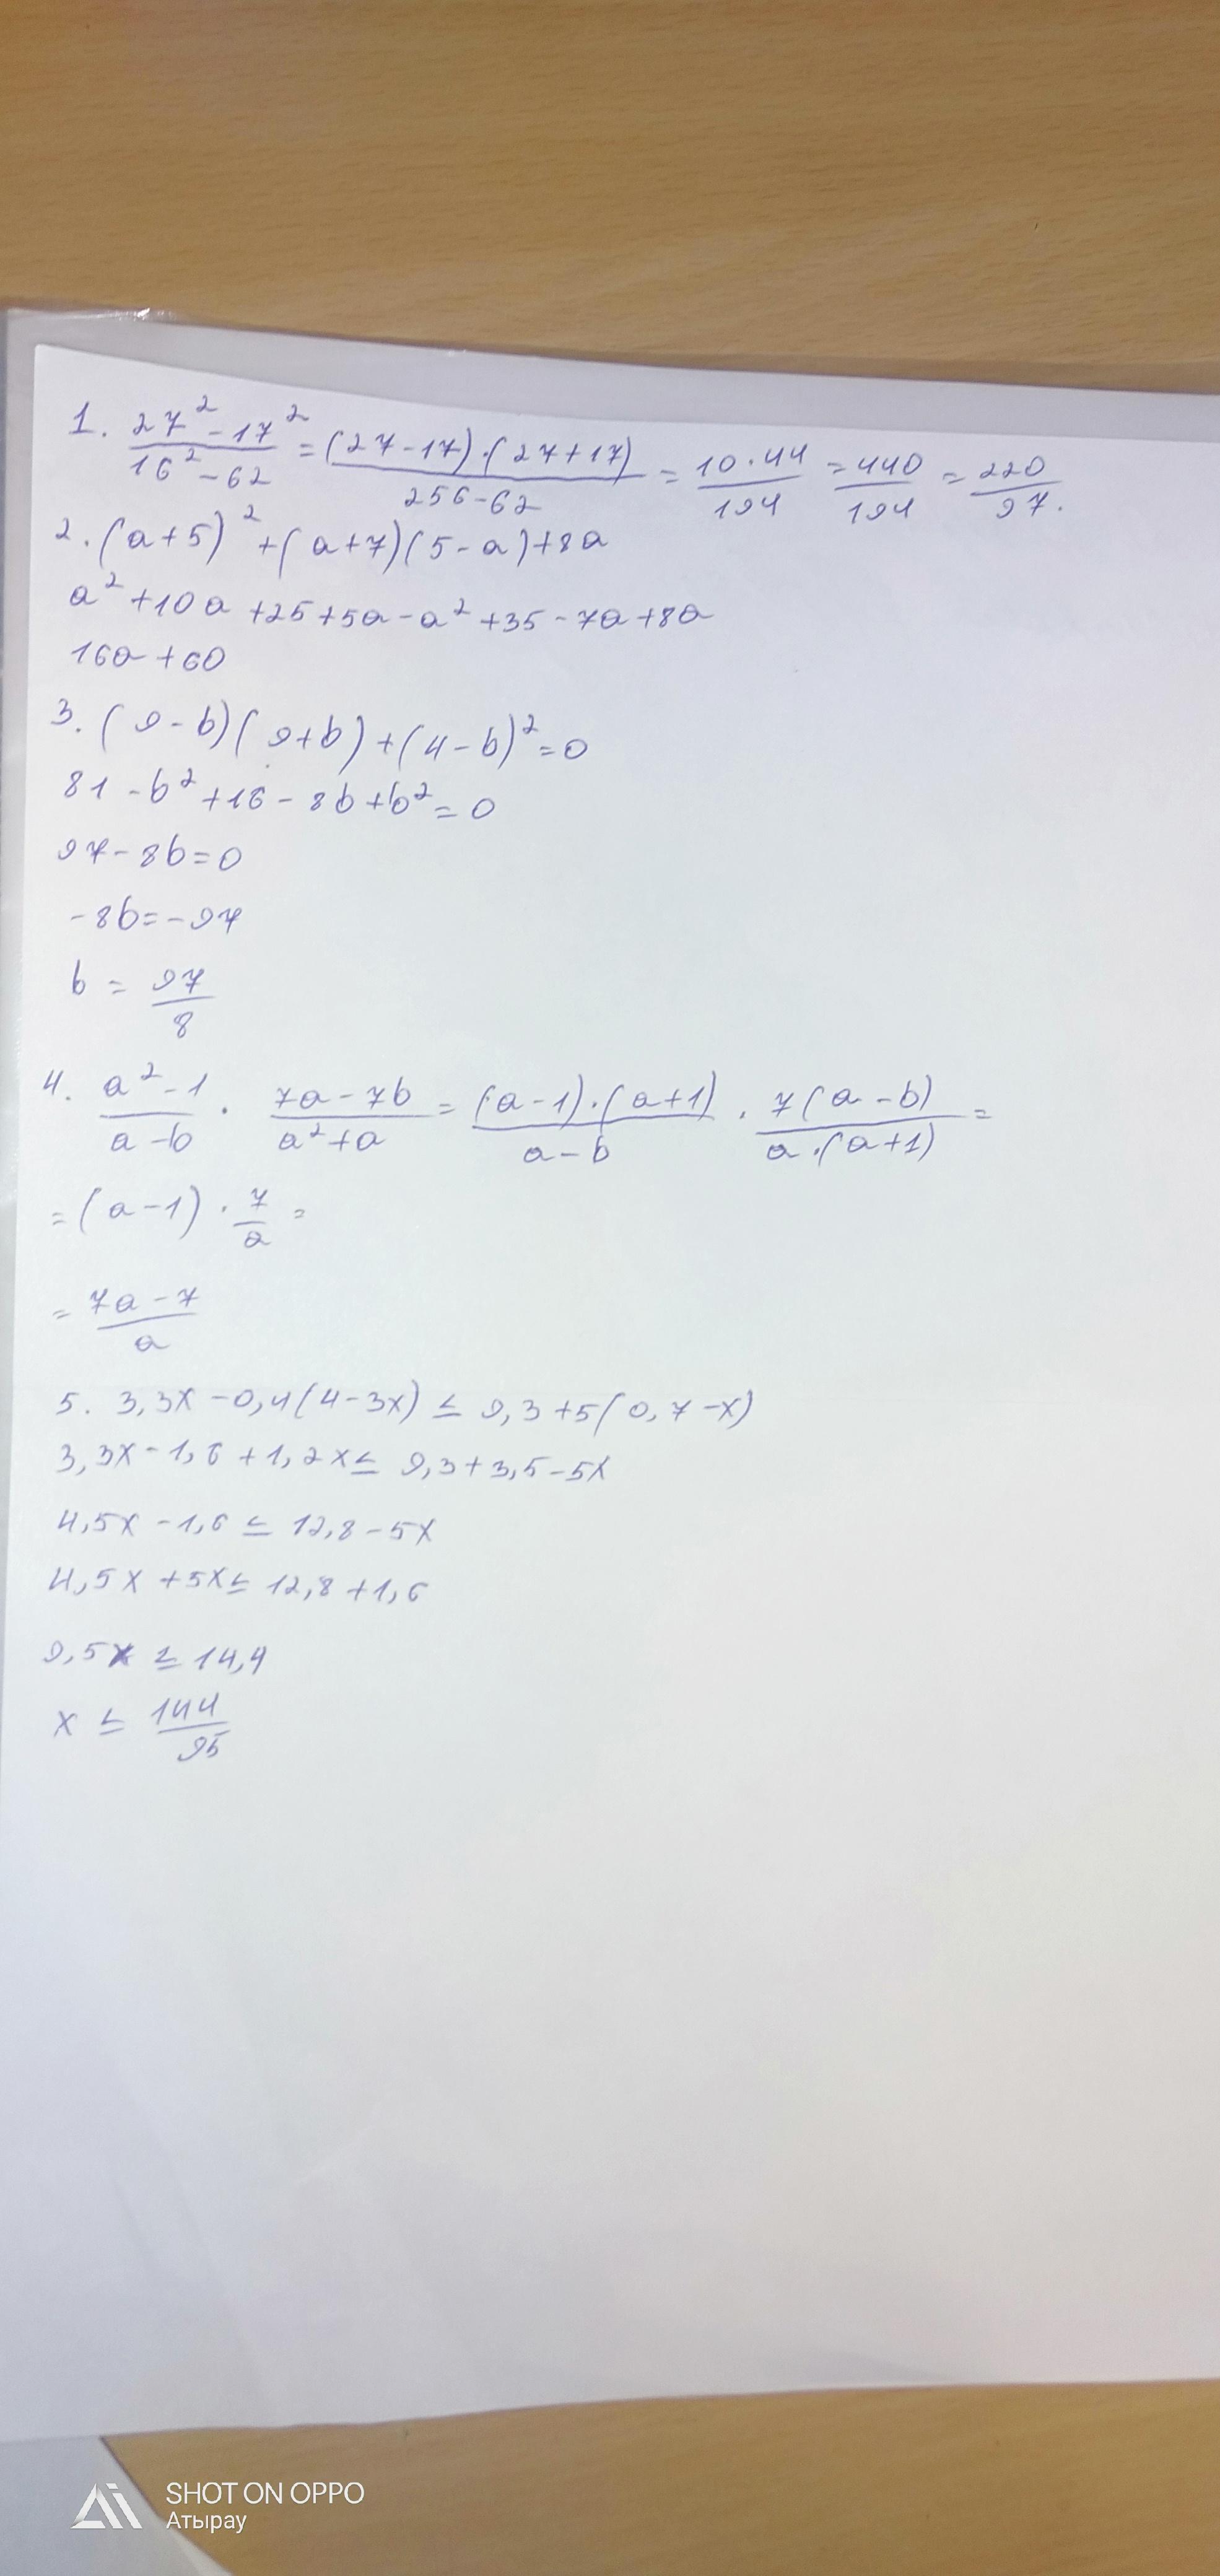 1. (27² - 17²)/(16² - 62) = ((27-17)·(27+17))/(256-62) = (10·44)/194 = 440/194 = 220/97.
2. (a+5)² + (a+7)(5-a)+8a
a²+10a+25+5a-a²+35-7a+8a
16a+60
3. (9-b)(9+b)+(4-b)²=0
81-b²+16-8b+b²=0
97-8b=0
-8b=-97
b = 97/8
4. (a²-1)/(a-b) · (7a-7b)/(a²+a) = ((a-1)·(a+1))/(a-b) · (7(a-b))/(a·(a+1)) =
= (a-1) · 7/a =
= (7a-7)/a
5. 3,3x-0,4(4-3x) ≤ 9,3+5(0,7-x)
3,3x-1,6+1,2x ≤ 9,3+3,5-5x
4,5x-1,6 ≤ 12,8-5x
4,5x+5x ≤ 12,8+1,6
9,5x ≤ 14,4
x ≤ 144/95
SHOT ON OPPO
Атырау